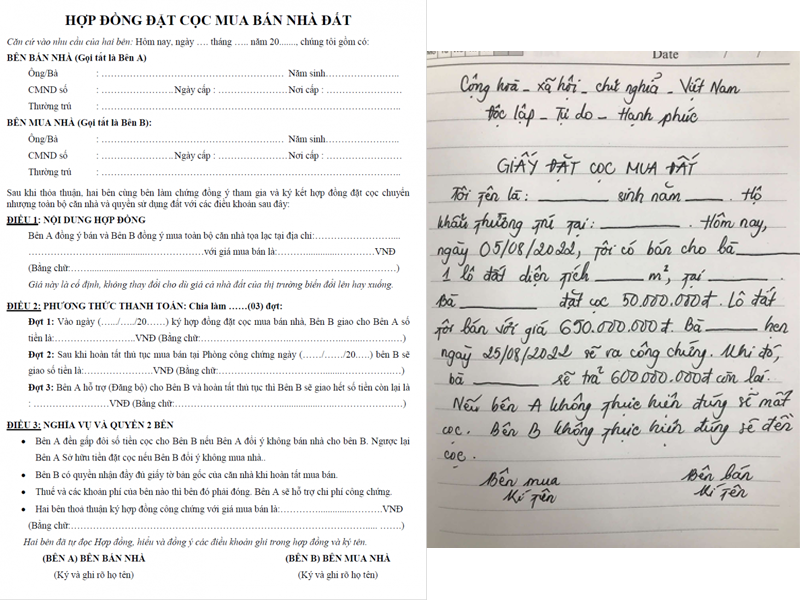 HỢP ĐỒNG ĐẶT CỌC MUA BÁN NHÀ ĐẤT
Căn cứ vào nhu cầu của hai bên: Hôm nay, ngày …. tháng ….. năm 20......., chúng tôi gồm có:
BÊN BÁN NHÀ (Gọi tắt là Bên A)
Ông/Bà : ……………………………………………………… Năm sinh……………………..
CMND số : …………………….. Ngày cấp : …………… Nơi cấp : ……………………
Thường trú : ……………………………………………………………………………………..
BÊN MUA NHÀ (Gọi tắt là Bên B):
Ông/Bà : ……………………………………………………… Năm sinh……………………..
CMND số : …………………….. Ngày cấp : …………… Nơi cấp : ……………………
Thường trú : ……………………………………………………………………………………..
Sau khi thỏa thuận, hai bên cùng bên làm chứng đồng ý tham gia và ký kết hợp đồng đặt cọc chuyển
nhượng toàn bộ căn nhà và quyền sử dụng đất với các điều khoản sau đây:
ĐIỀU 1: NỘI DUNG HỢP ĐỒNG
Bên A đồng ý bán và Bên B đồng ý mua toàn bộ căn nhà tọa lạc tại địa chỉ:……………………….....
……………………………………………………với giá mua bán là:……………………………VNĐ
(Bằng chữ:……………………………………………………………………………………………)
Giá này là cố định, không thay đổi cho dù giá cả nhà đất của thị trường biến đổi lên hay xuống.
ĐIỀU 2: PHƯƠNG THỨC THANH TOÁN: Chia làm ……(03) đợt:
Đợt 1: Vào ngày (…../…../20……) ký hợp đồng đặt cọc mua bán nhà. Bên B giao cho Bên A số
tiền là:………………………VNĐ (Bằng chữ:……………………………………………………..)
Đợt 2: Sau khi hoàn tất thủ tục mua bán tại Phòng công chứng ngày (……/……/20…..) bên B sẽ
giao số tiền là:……………………VNĐ (Bằng chữ:………………………………………………..)
Đợt 3: Bên A hỗ trợ (Đăng bộ) cho Bên B và hoàn tất thủ tục thì Bên B sẽ giao hết số tiền còn lại là
: ……………………VNĐ (Bằng chữ:……………………………………………………………)
ĐIỀU 3: NGHĨA VỤ VÀ QUYỀN 2 BÊN
• Bên A đền gấp đôi số tiền cọc cho Bên B nếu Bên A đổi ý không bán nhà cho bên B. Ngược lại
Bên A Sở hữu tiền đặt cọc nếu Bên B đổi ý không mua nhà..
• Bên B có quyền nhận đầy đủ giấy tờ bản gốc của căn nhà khi hoàn tất mua bán.
• Thuế và các khoản phí của bên nào thì bên đó phải đóng. Bên A sẽ hỗ trợ chi phí công chứng.
• Hai bên thoả thuận ký hợp đồng công chứng với giá mua bán là:……………………..………VNĐ
(Bằng chữ:………………………………………………………………………………… ……..)
Hai bên đã tự đọc Hợp đồng, hiểu và đồng ý các điều khoản ghi trong hợp đồng và ký tên.
(BÊN A) BÊN BÁN NHÀ (BÊN B) BÊN MUA NHÀ
(Ký và ghi rõ họ tên) (Ký và ghi rõ họ tên)
Date / /
Cộng hoà - xã hội - chủ nghĩa - Việt Nam
Độc lập - Tự do - Hạnh phúc
GIẤY ĐẶT CỌC MUA ĐẤT
Tôi tên là: ________ sinh năm ____ . Hộ
khẩu thường trú tại: ________ . Hôm nay,
ngày 05/08/2022, tôi có bán cho bà ______
1 lô đất diện tích ______ m², tại ______ .
Bà ______ đặt cọc 50.000.000đ. Lô đất
tôi bán với giá 650.000.000đ. Bà ______ hẹn
ngày 25/08/2022 sẽ ra công chứng. Khi đó,
bà ______ sẽ trả 600.000.000đ còn lại.
Nếu bên A không thực hiện đúng sẽ mất
cọc. Bên B không thực hiện đúng sẽ đền
cọc.
Bên mua Bên bán
Kí tên Kí tên